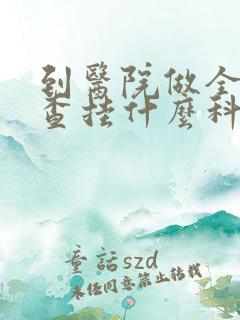 到醫院做全
查挂什麽科
童話szd
未经同意禁止转载